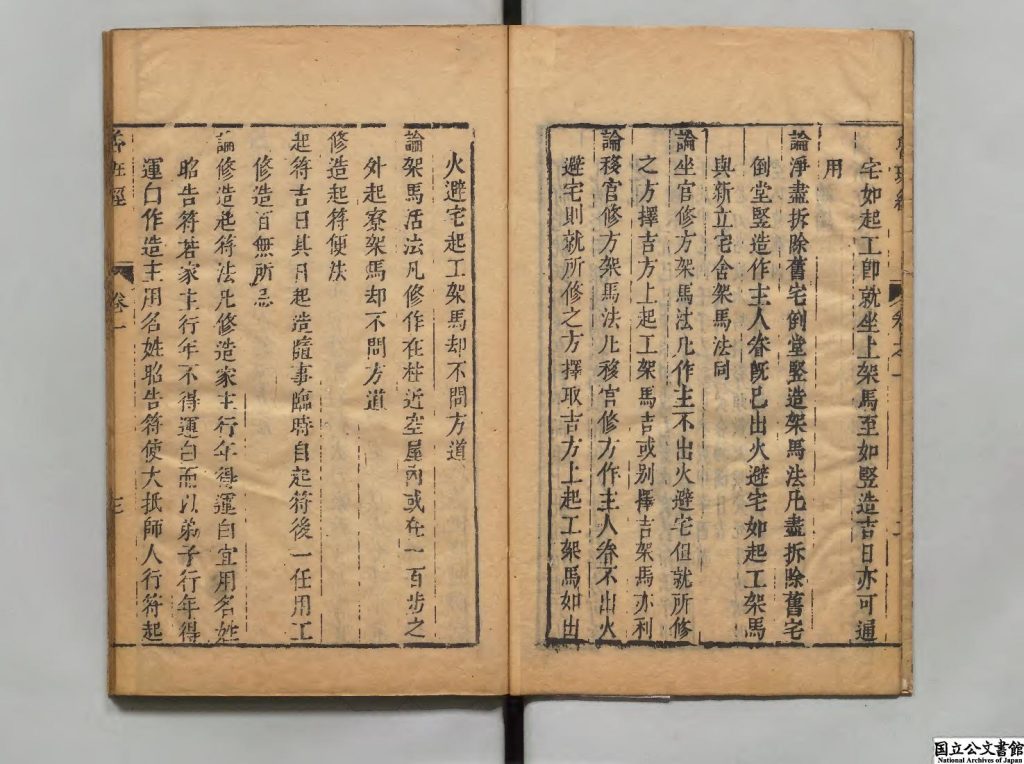 宅如起工即就坐上架馬至如竪造吉日亦可通
用
論淨盡拆除舊宅倒堂竪造架馬法凡盡拆除舊宅
倒堂竪造作主人眷既已出火避宅如起工架馬
與新立宅舍架馬法同
論坐宮修方架馬法凡作主不出火避宅但就所修
之方擇吉方上起工架馬吉或别擇吉架馬亦利
論移宮修方架馬法凡移宮修方作主人眷不出火
避宅則就所修之方擇取吉方上起工架馬如出
火避宅起工架馬却不問方道
論架馬活法凡修作在柱近空屋內或在一百步之
外起寮架馬却不問方道
修造起符便法
起符吉日其日起造隨事臨時自起符後一任用工
修造百無所忌
論修造起符法凡修造家主行年得運白宜用名姓
昭告符若家主行年不得運白而以弟子行年得
運白作造主用名姓昭告符使大抵師人行符起
魯班經
卷一
国立公文書館
National Archives of Japan